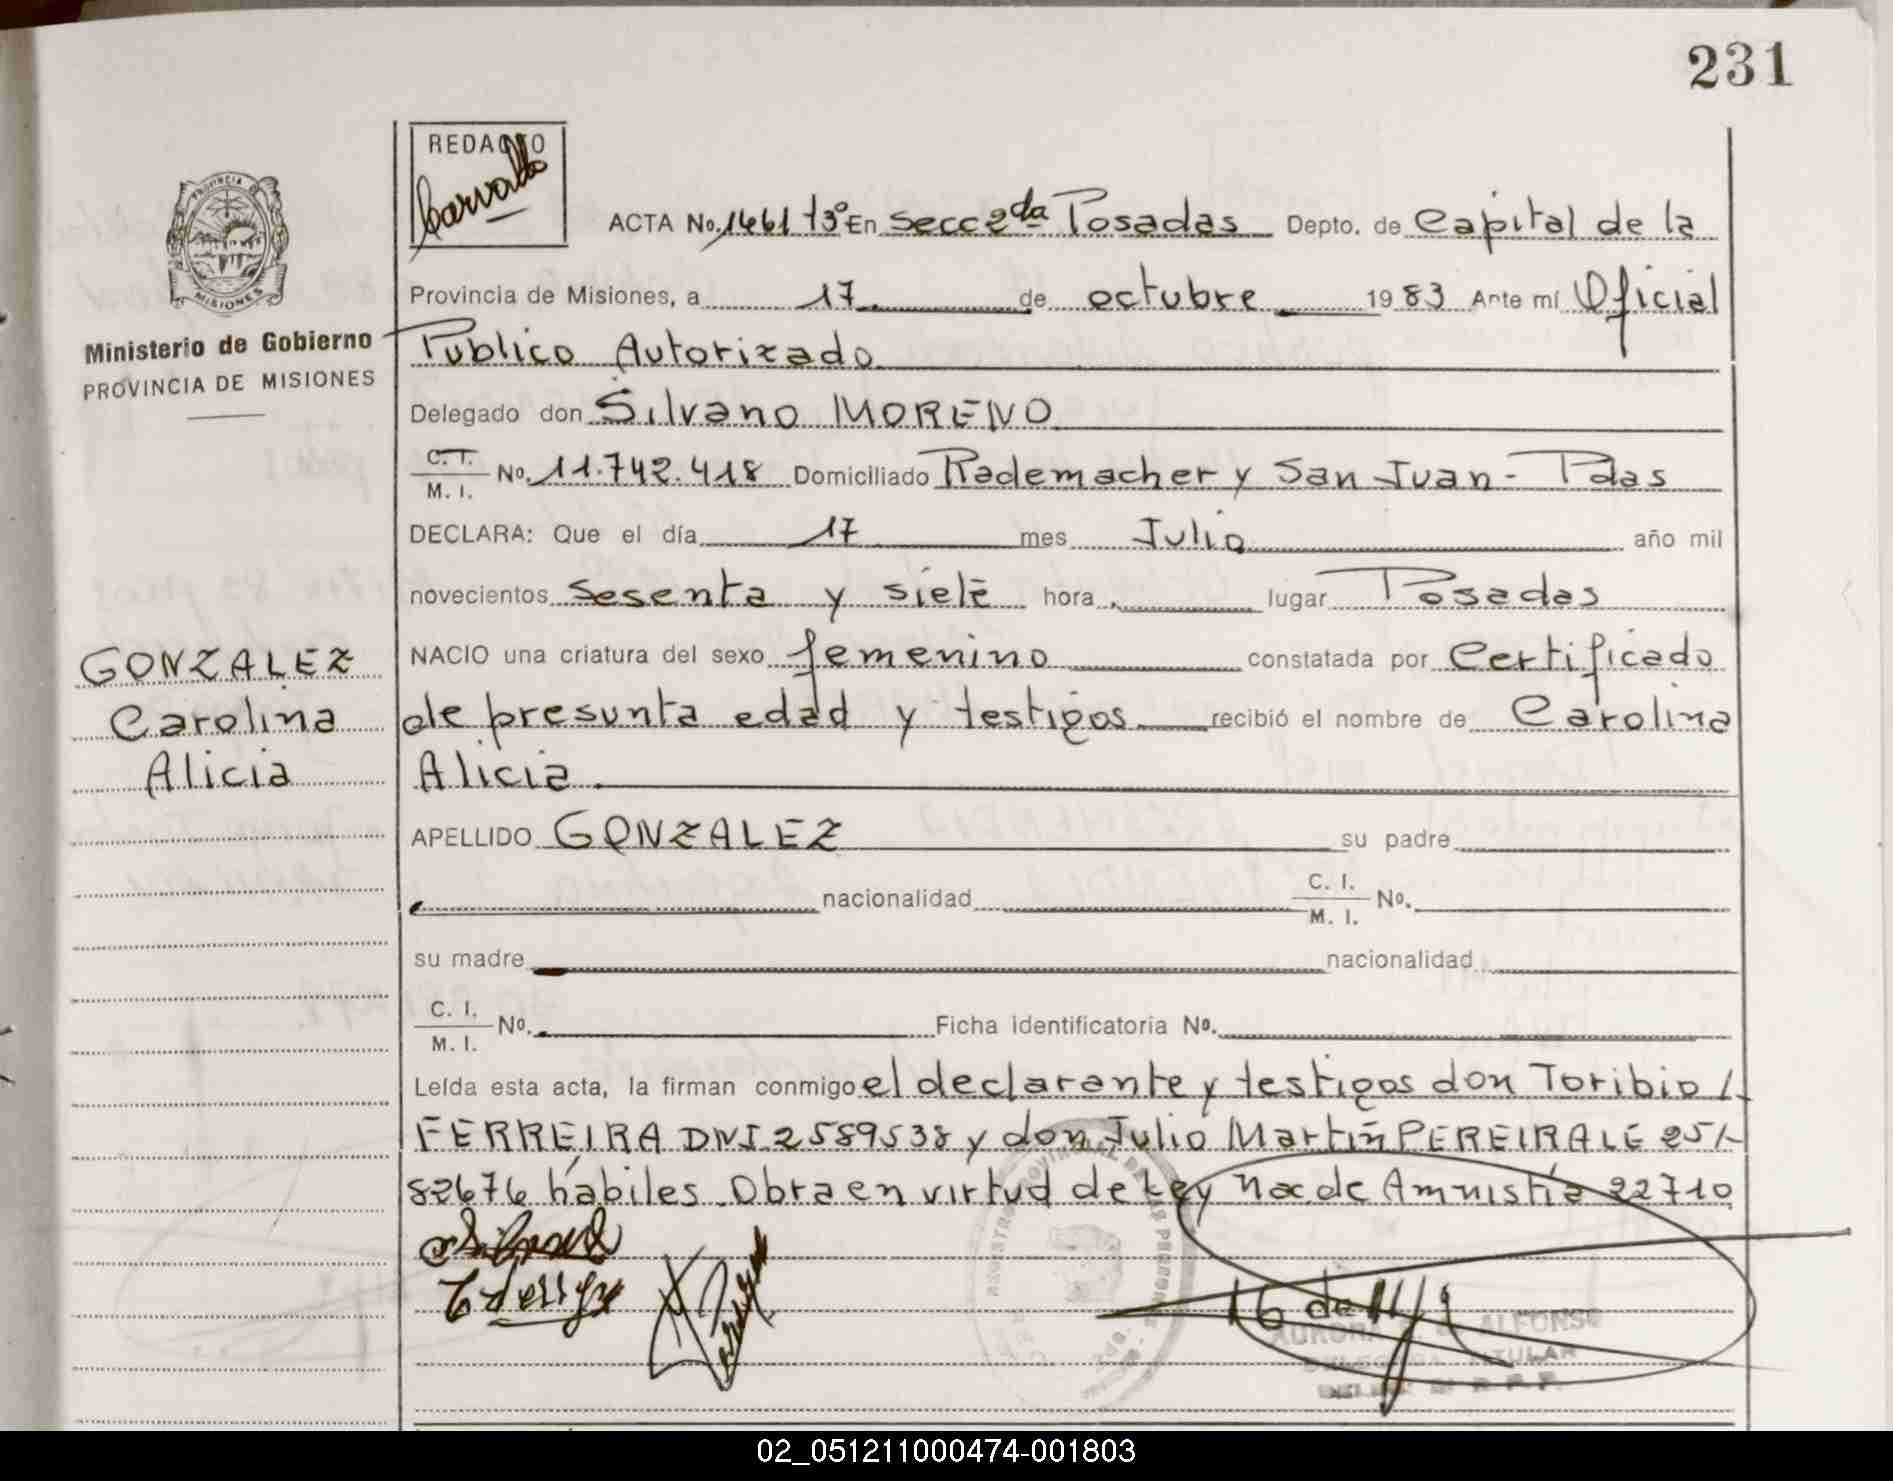 231
REDACTO
Carvallo
ACTA No. 1461 t3º En Secc 2da Posadas Depto. de Capital de la
Provincia de Misiones, a 17 de octubre 1983 Ante mí Oficial
Publico Autorizado
Delegado don Silvano MORENO
C. I. M. I. No. 11.742.418 Domiciliado Rademacher y San Juan - Pdas
DECLARA: Que el día 17 mes Julio año mil
novecientos sesenta y siete hora lugar Posadas
NACIO una criatura del sexo femenino constatada por Certificado
de presunta edad y testigos recibió el nombre de Carolina
Alicia.
APELLIDO GONZALEZ su padre
nacionalidad C. I. M. I. No.
su madre nacionalidad
C. I. M. I. No. Ficha identificatoria No.
Leída esta acta, la firman conmigo el declarante y testigos don Toribio
FERREIRA DNI 2589538 y don Julio Martín PEREIRA LE 251-
82676 hábiles. Obra en virtud de Ley Nac de Amnistía 22710
Ministerio de Gobierno
PROVINCIA DE MISIONES
GONZALEZ
Carolina
Alicia
PROVINCIA DE
MISIONES
ALFONSO
TITULAR
02_051211000474-001803